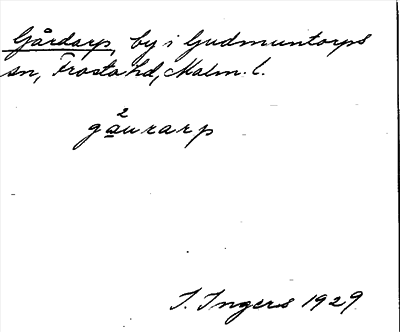 Gårdarp, by i Gudmuntorps
sn, Frosta hd, Malm. l.
2
gaurarp
I. Ingers 1929